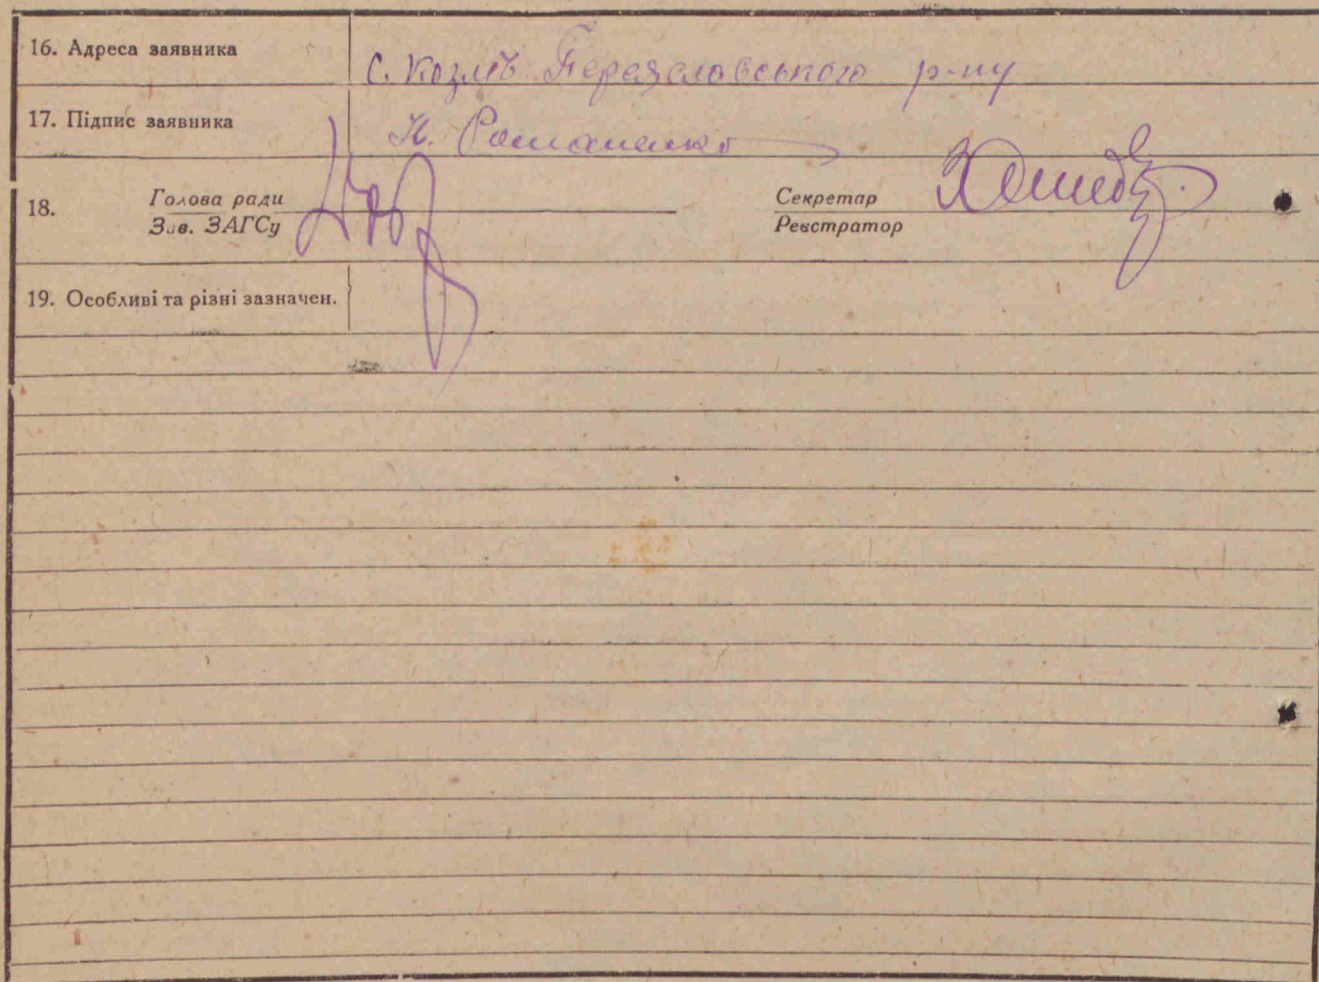 16. Адреса заявника
с. Козлів Переяславського р-ну
17. Підпис заявника
Н. Романенко
18. Голова ради
Зав. ЗАГСу
Секретар
Реєстратор
19. Особливі та різні зазначен.